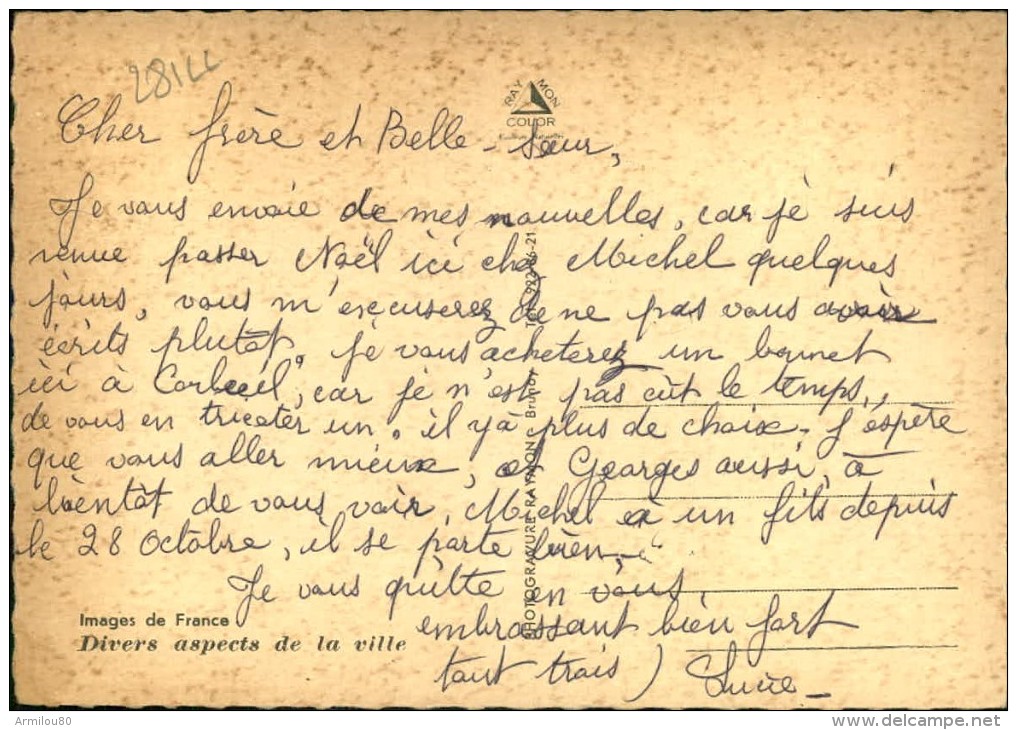 281LL
RAY MON
COLOR
Cher frère et Belle-sœur,
Je vous envoie de mes nouvelles, car je suis
venue passer Noël ici chez Michel quelques
jours, vous m'excuserez de ne pas vous avoir
écrits plutôt, je vous acheterez un bonnet
ici à Corbeil, car je n'est pas eût le temps,
de vous en tricoter un, il y à plus de choix. J'espère
que vous aller mieux, et Georges aussi, à
bientôt de vous voir, Michel à un fils depuis
le 28 Octobre, il se porte bien.
Je vous quitte en vous
embrassant bien fort
tout trois) Lucie
PHOTOGRAVURE RAYMON - Brunoy - Tél. 922-86-21
Images de France
Divers aspects de la ville
Armilou80
www.delcampe.net